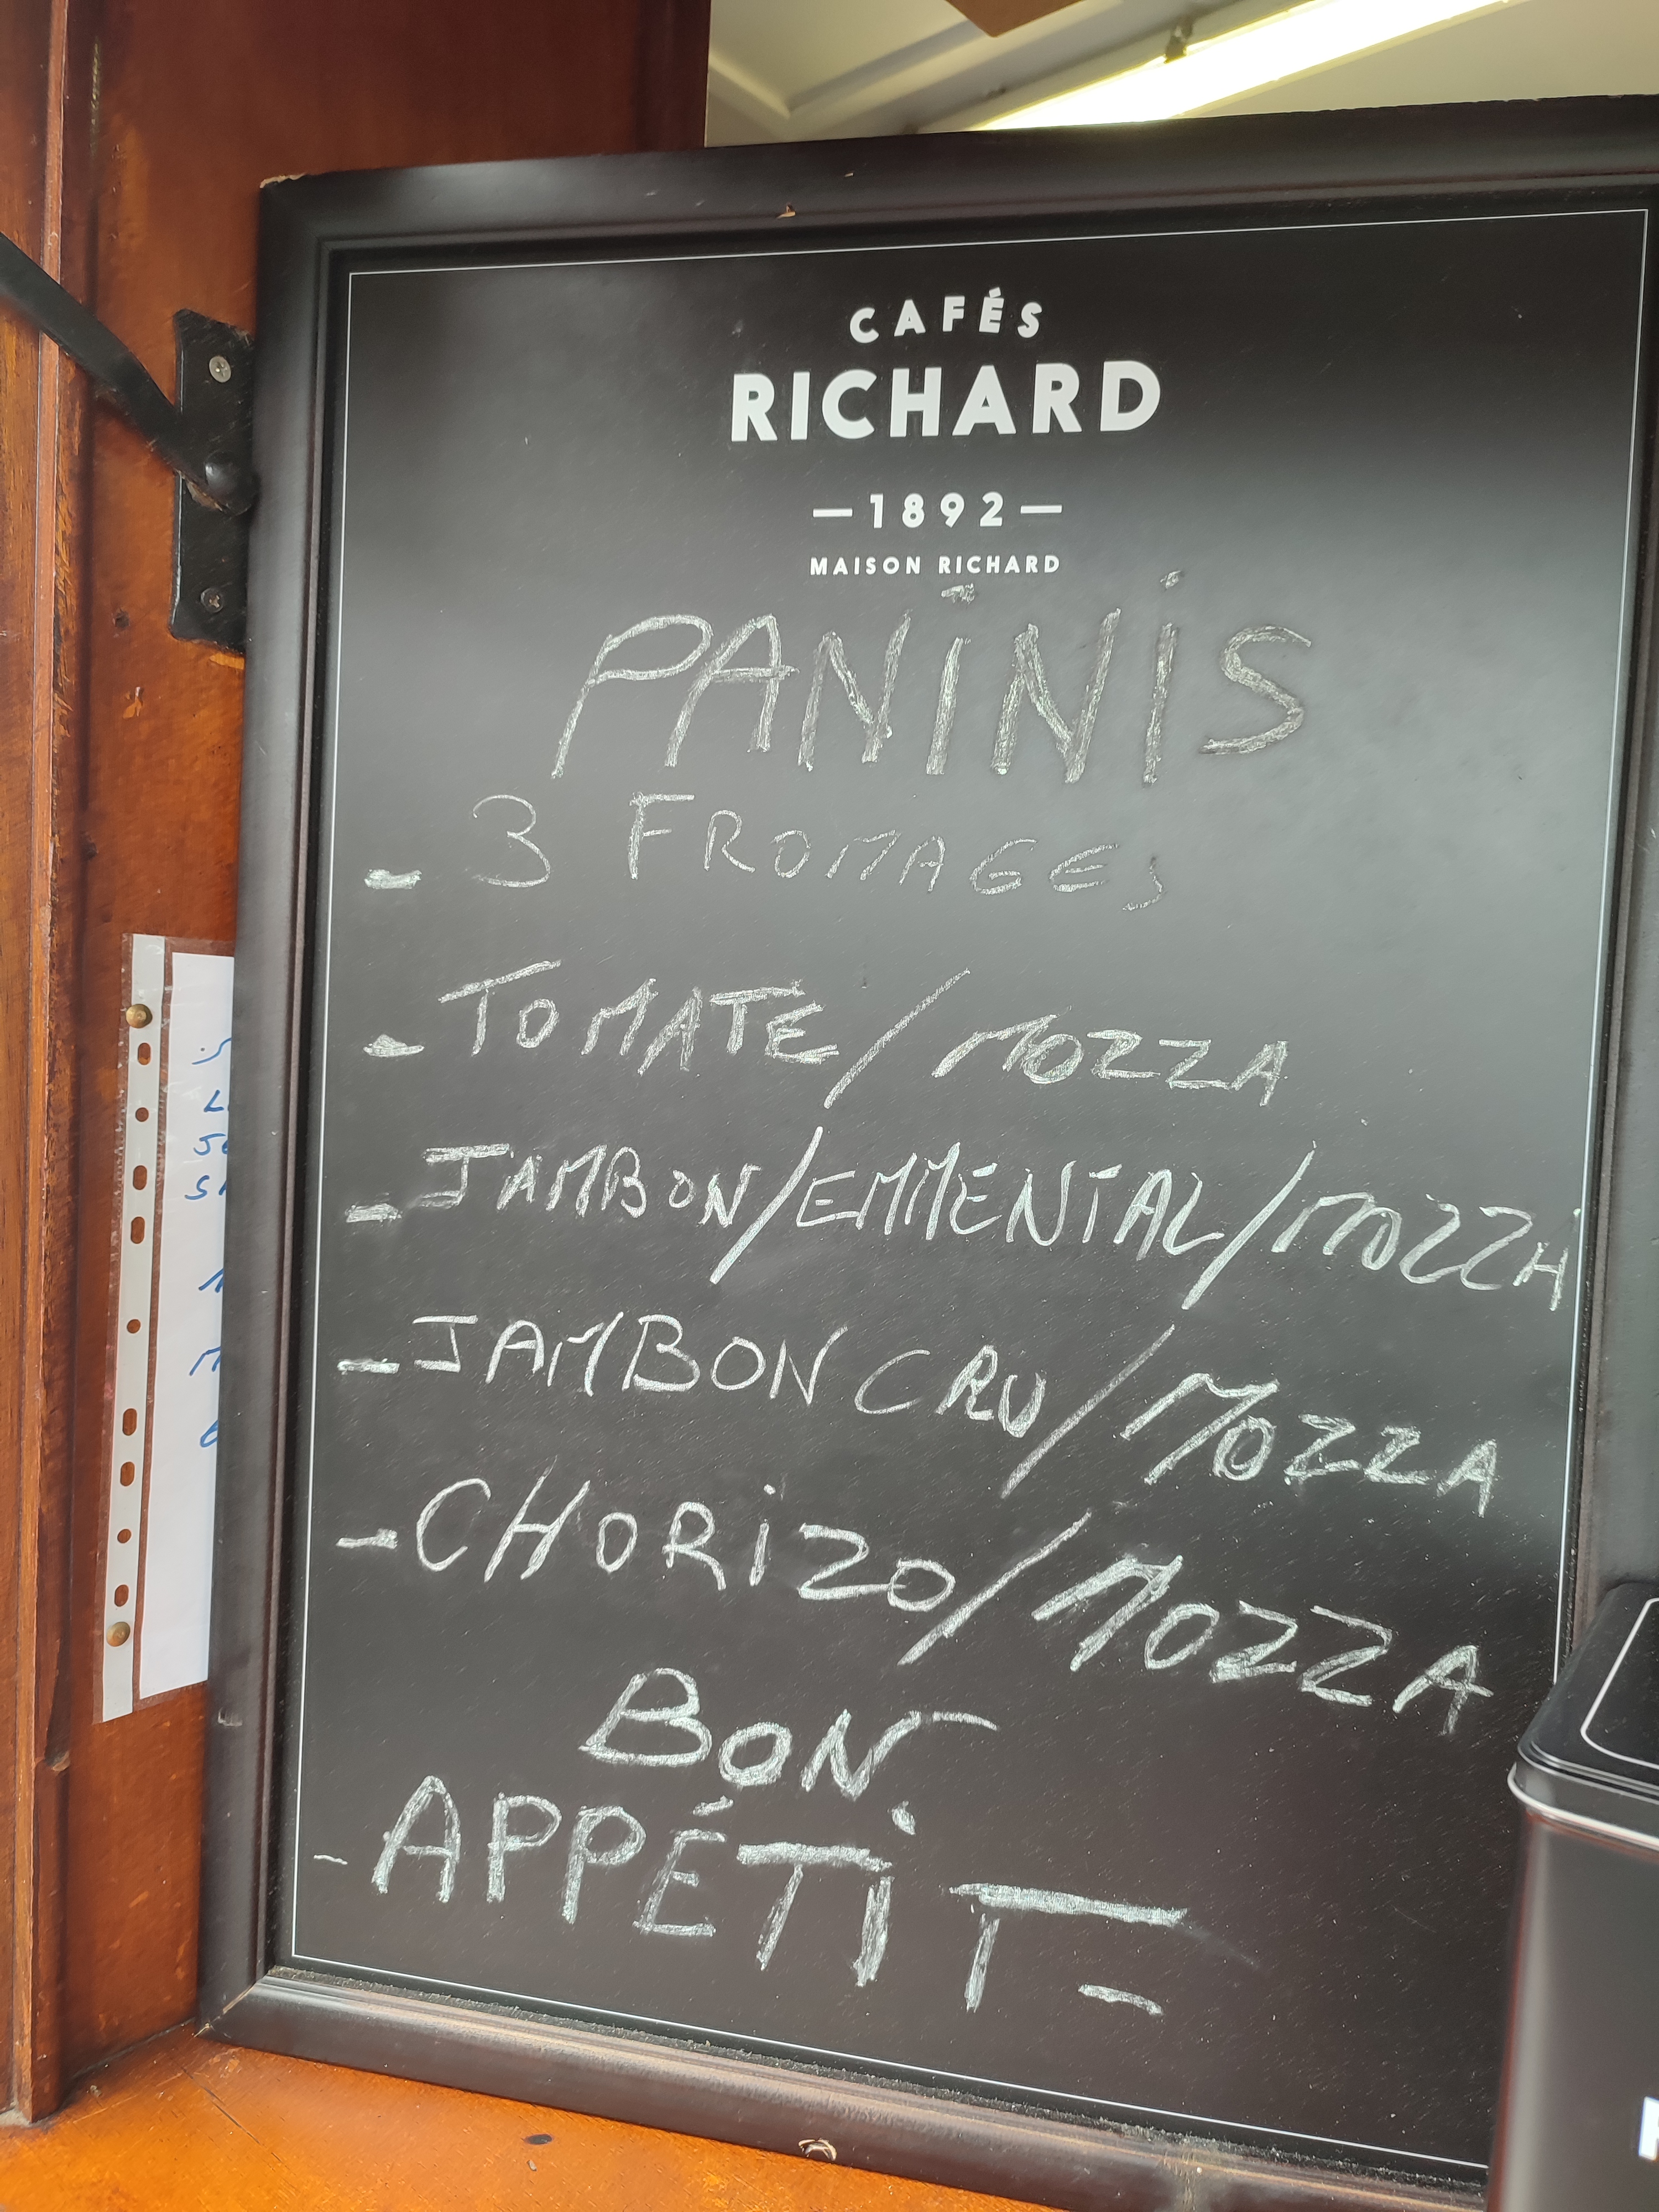 CAFÉS
RICHARD
—1892—
MAISON RICHARD
PANINIS
- 3 FROMAGES
- TOMATE/MOZZA
- JAMBON/EMMENTAL/MOZZA
- JAMBON CRU/MOZZA
- CHORIZO/MOZZA
BON
- APPÉTIT -